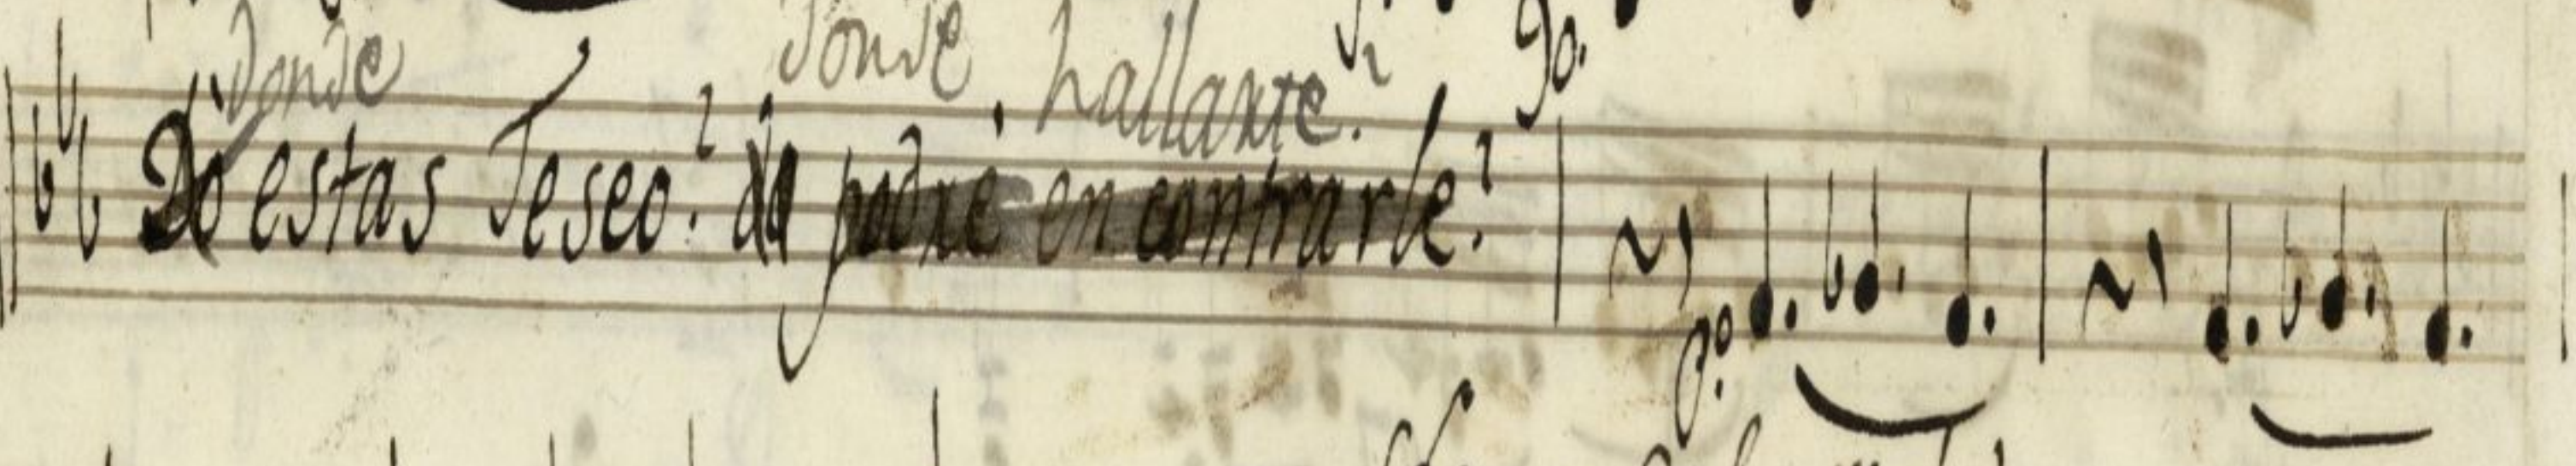 donde donde hallarte.
Do estas Teseo? do podré encontrarle?
po